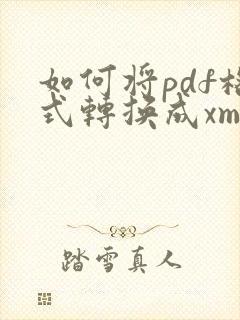 如何将pdf格
式轉換成xm
踏雪真人